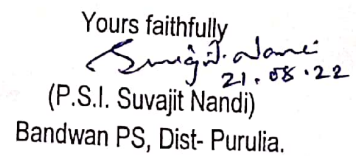 Yours faithfully
Suvajit Nandi
21.08.22
(P.S.I. Suvajit Nandi)
Bandwan PS, Dist- Purulia.